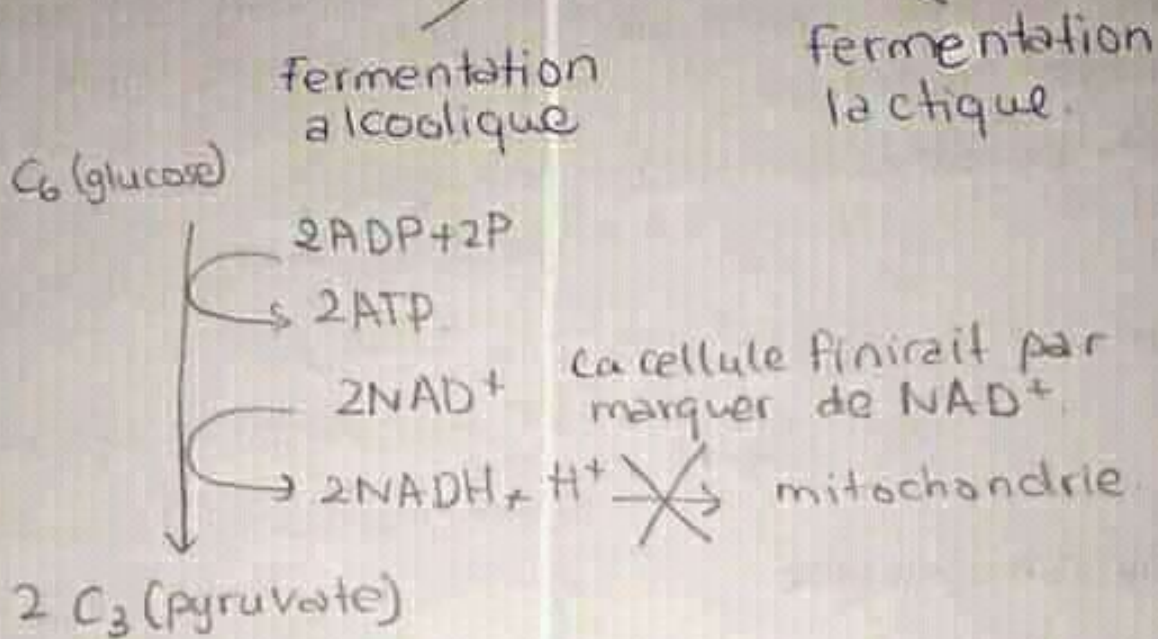 fermentation
alcoolique
fermentation
lactique.
C₆ (glucose)
2ADP+2P
2ATP
2NAD⁺
La cellule finirait par
marquer de NAD⁺.
2NADH, H⁺
mitochondrie.
2 C₃ (pyruvate)